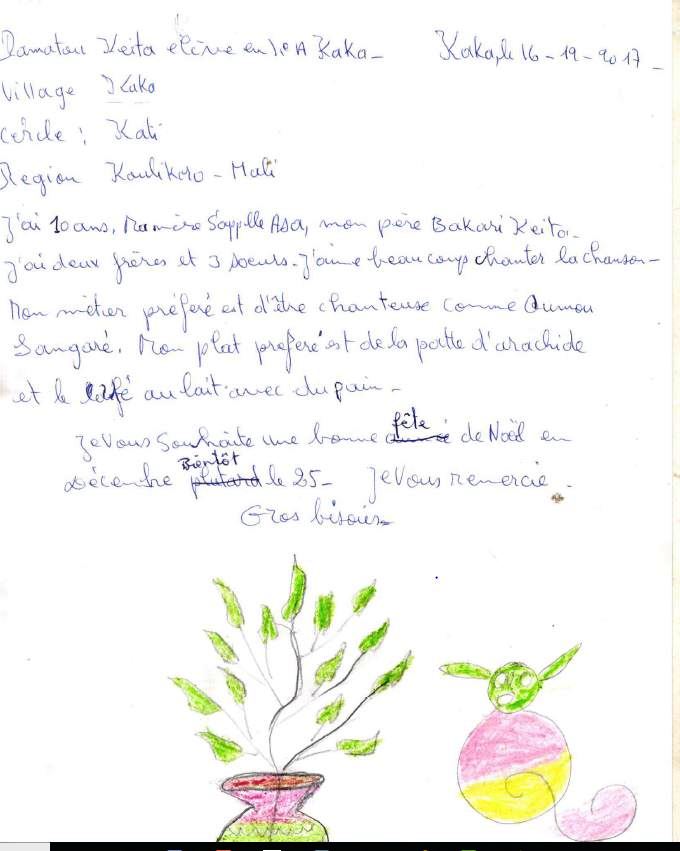 Damatou Keita élève en A Kaka - Kaka, le 16 - 12 - 2017 -
Village Kako
Cercle : Kati
Region Koulikoro - Mali
J'ai 10 ans, Ma mère s'appelle Asa, mon père Bakari Keita.
J'ai deux frères et 3 soeurs. J'aime beaucoups chanter la chanson -
Mon métier préféré est d'être chanteuse comme Oumou
Sangaré. Mon plat preferé est de la patte d'arachide
et le café au lait avec du pain -
Je Vous Souhaite une bonne fête de Noël en
Décembre Bientôt plutard le 25 - Je Vous remercie.
Gros bisoies